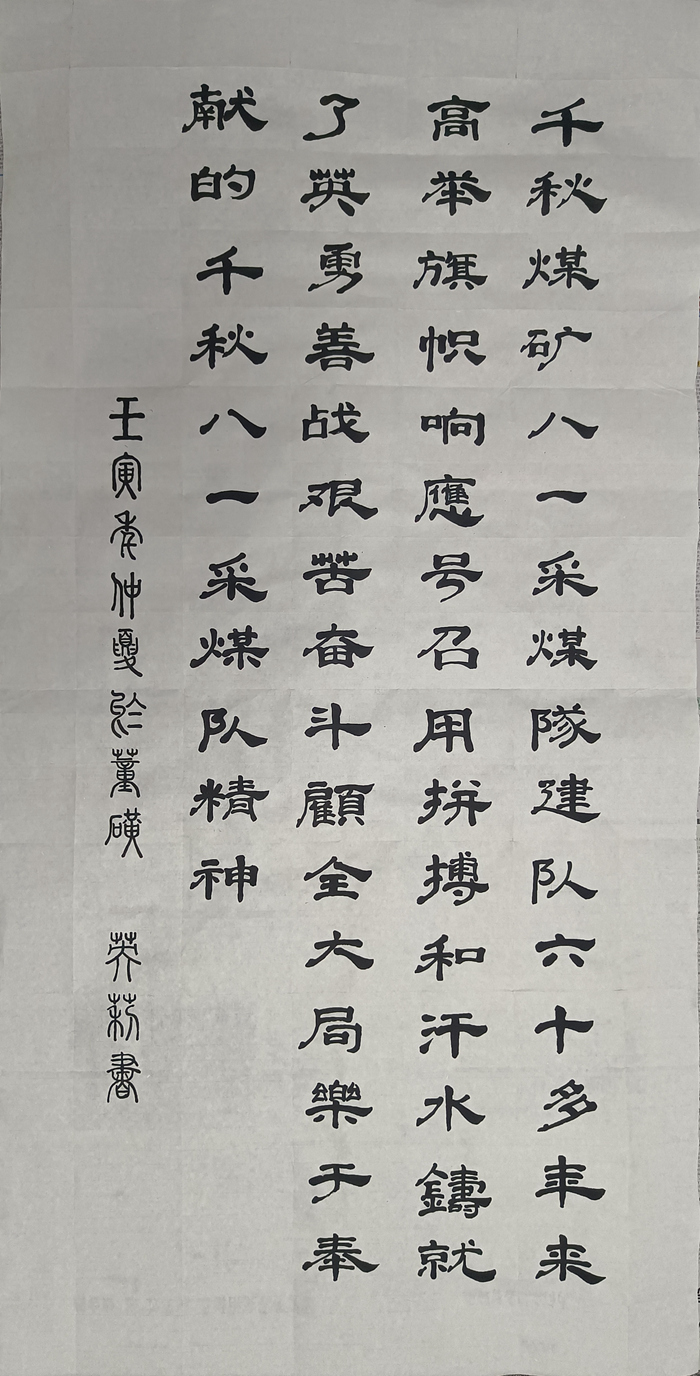 千秋煤矿八一采煤隊建队六十多年来
高举旗帜响應号召用拼搏和汗水鑄就
了英勇善战艰苦奋斗顧全大局樂于奉
献的千秋八一采煤队精神
壬寅年仲夏於董礦 英莉書